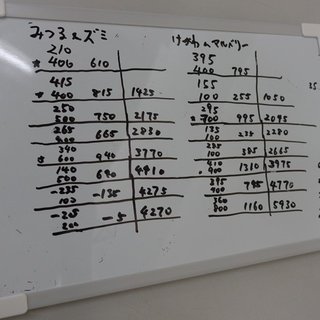 みつる&ズミ
210
*400 610
415
*400 815 1425
250
500 750 2175
265
400 665 2830
340
*600 940 3770
140
500 640 4410
-235
100 -135 4275
-205
200 -5 4270
けがわ&マルベリー
395
400 795
155
100 255 1050
295
*700 995 2045
135
100 235 2280
285
100 385 2665
410
900 1310 3975
395
400 795 4770
360
800 1160 5930